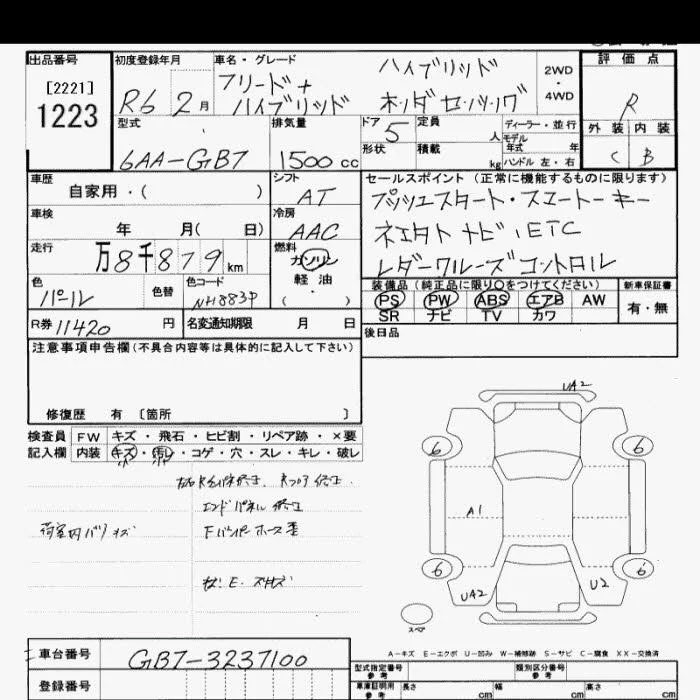 出品番号 初度登録年月 車名・グレード 評価点
[2221]
1223
R6 2月 フリード+ ハイブリッド ハイブリッド ホンダセンシング 2WD・4WD R
型式 排気量 ドア 5 定員 人 ディーラー・並行 外装 内装
6AA-GB7 1500cc 形状 積載 kg モデル年式 年 ハンドル 左・右 C B
車歴 シフト セールスポイント (正常に機能するものに限ります)
自家用・( ) AT プッシュスタート・スマートーキー
車検 冷房
年 月( 日) AAC ETC
走行 燃料
万8千879km ガソリン レーダークルーズコントロール
色 色替 色コード 軽油 装備品(純正品に限り〇をつけてください) 新車保証書
パール NH883P ・( ) PS PW ABS エアB AW 有・無
SR ナビ TV カワ
R券 11420 円 名変通知期限 月 日 後日品
注意事項申告欄(不具合内容等は具体的に記入して下さい)
修復歴 有 〔箇所 〕
検査員 FW キズ・飛石・ヒビ割・リペア跡・×要
記入欄 内装 キズ・汚レ・コゲ・穴・スレ・キレ・破レ
エンドパネル
荷室内 キズ
UA2
6 6
A1
6 6
UA2 U2
スペア
A-キズ E-エクボ U-凹み W-補修跡 S-サビ C-腐食 XX-交換済
車台番号 GB7-3237100 型式指定番号 参考 類別区分番号 参考
登録番号 車庫証明用 参考 長さ cm 幅 cm 高さ cm